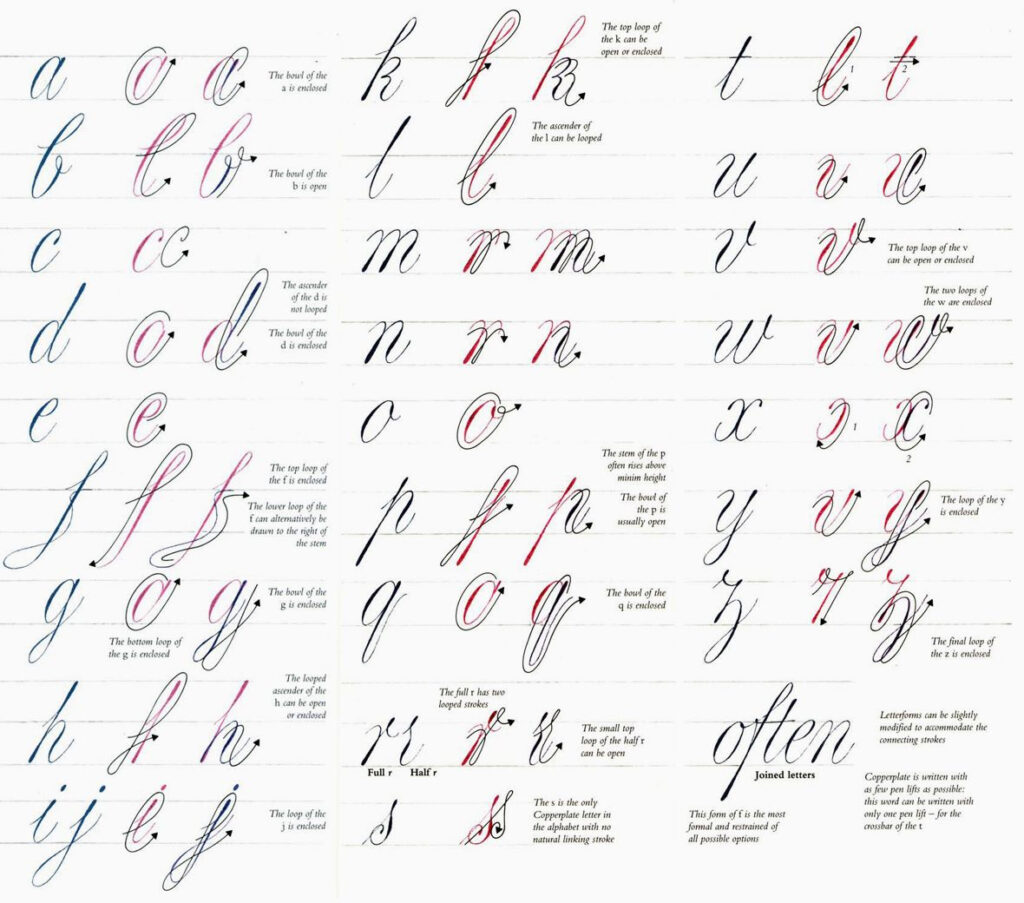 a
The bowl of the
a is enclosed
b
The bowl of the
b is open
c
The ascender
of the d is
not looped
d
The bowl of the
d is enclosed
e
f
The top loop of
the f is enclosed
The lower loop of the
f can alternatively be
drawn to the right of
the stem
g
The bowl of the
g is enclosed
The bottom loop of
the g is enclosed
h
The looped
ascender of the
h can be open
or enclosed
i j
The loop of the
j is enclosed
k
The top loop of
the k can be
open or enclosed
l
The ascender of
the l can be looped
m
n
o
The stem of the p
often rises above
minim height
p
The bowl of
the p is
usually open
q
The bowl of the
q is enclosed
The full r has two
looped strokes
r r
The small top
loop of the half r
can be open
Full r Half r
s
The s is the only
Copperplate letter in
the alphabet with no
natural linking stroke
t 1 2
u
v
The top loop of the v
can be open or enclosed
The two loops of
the w are enclosed
w
x 1
2
y
The loop of the y
is enclosed
z
The final loop of
the z is enclosed
often
Letterforms can be slightly
modified to accommodate the
connecting strokes
Joined letters
Copperplate is written with
as few pen lifts as possible:
this word can be written with
only one pen lift – for the
crossbar of the t
This form of f is the most
formal and restrained of
all possible options